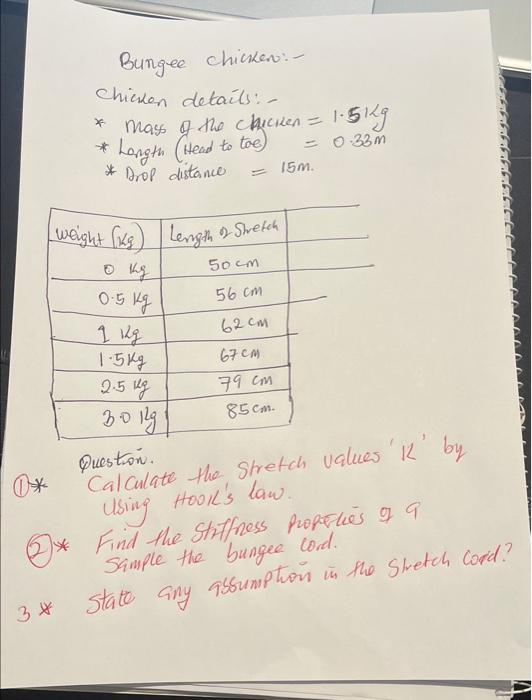 Bungee chicken:-
chicken details:-
* Mass of the chicken = 1.5kg
* Length (Head to toe) = 0.33m
* Drop distance = 15m.
weight (kg) Length of Stretch
0 kg 50 cm
0.5 kg 56 cm
1 kg 62 cm
1.5kg 67 cm
2.5 kg 79 cm
3.0 kg 85 cm.
Question.
①* Calculate the stretch values 'K' by
Using Hook's law.
②* Find the Stiffness Properties of a
Sample the bungee cord.
3 * State any assumption in the stretch cord?